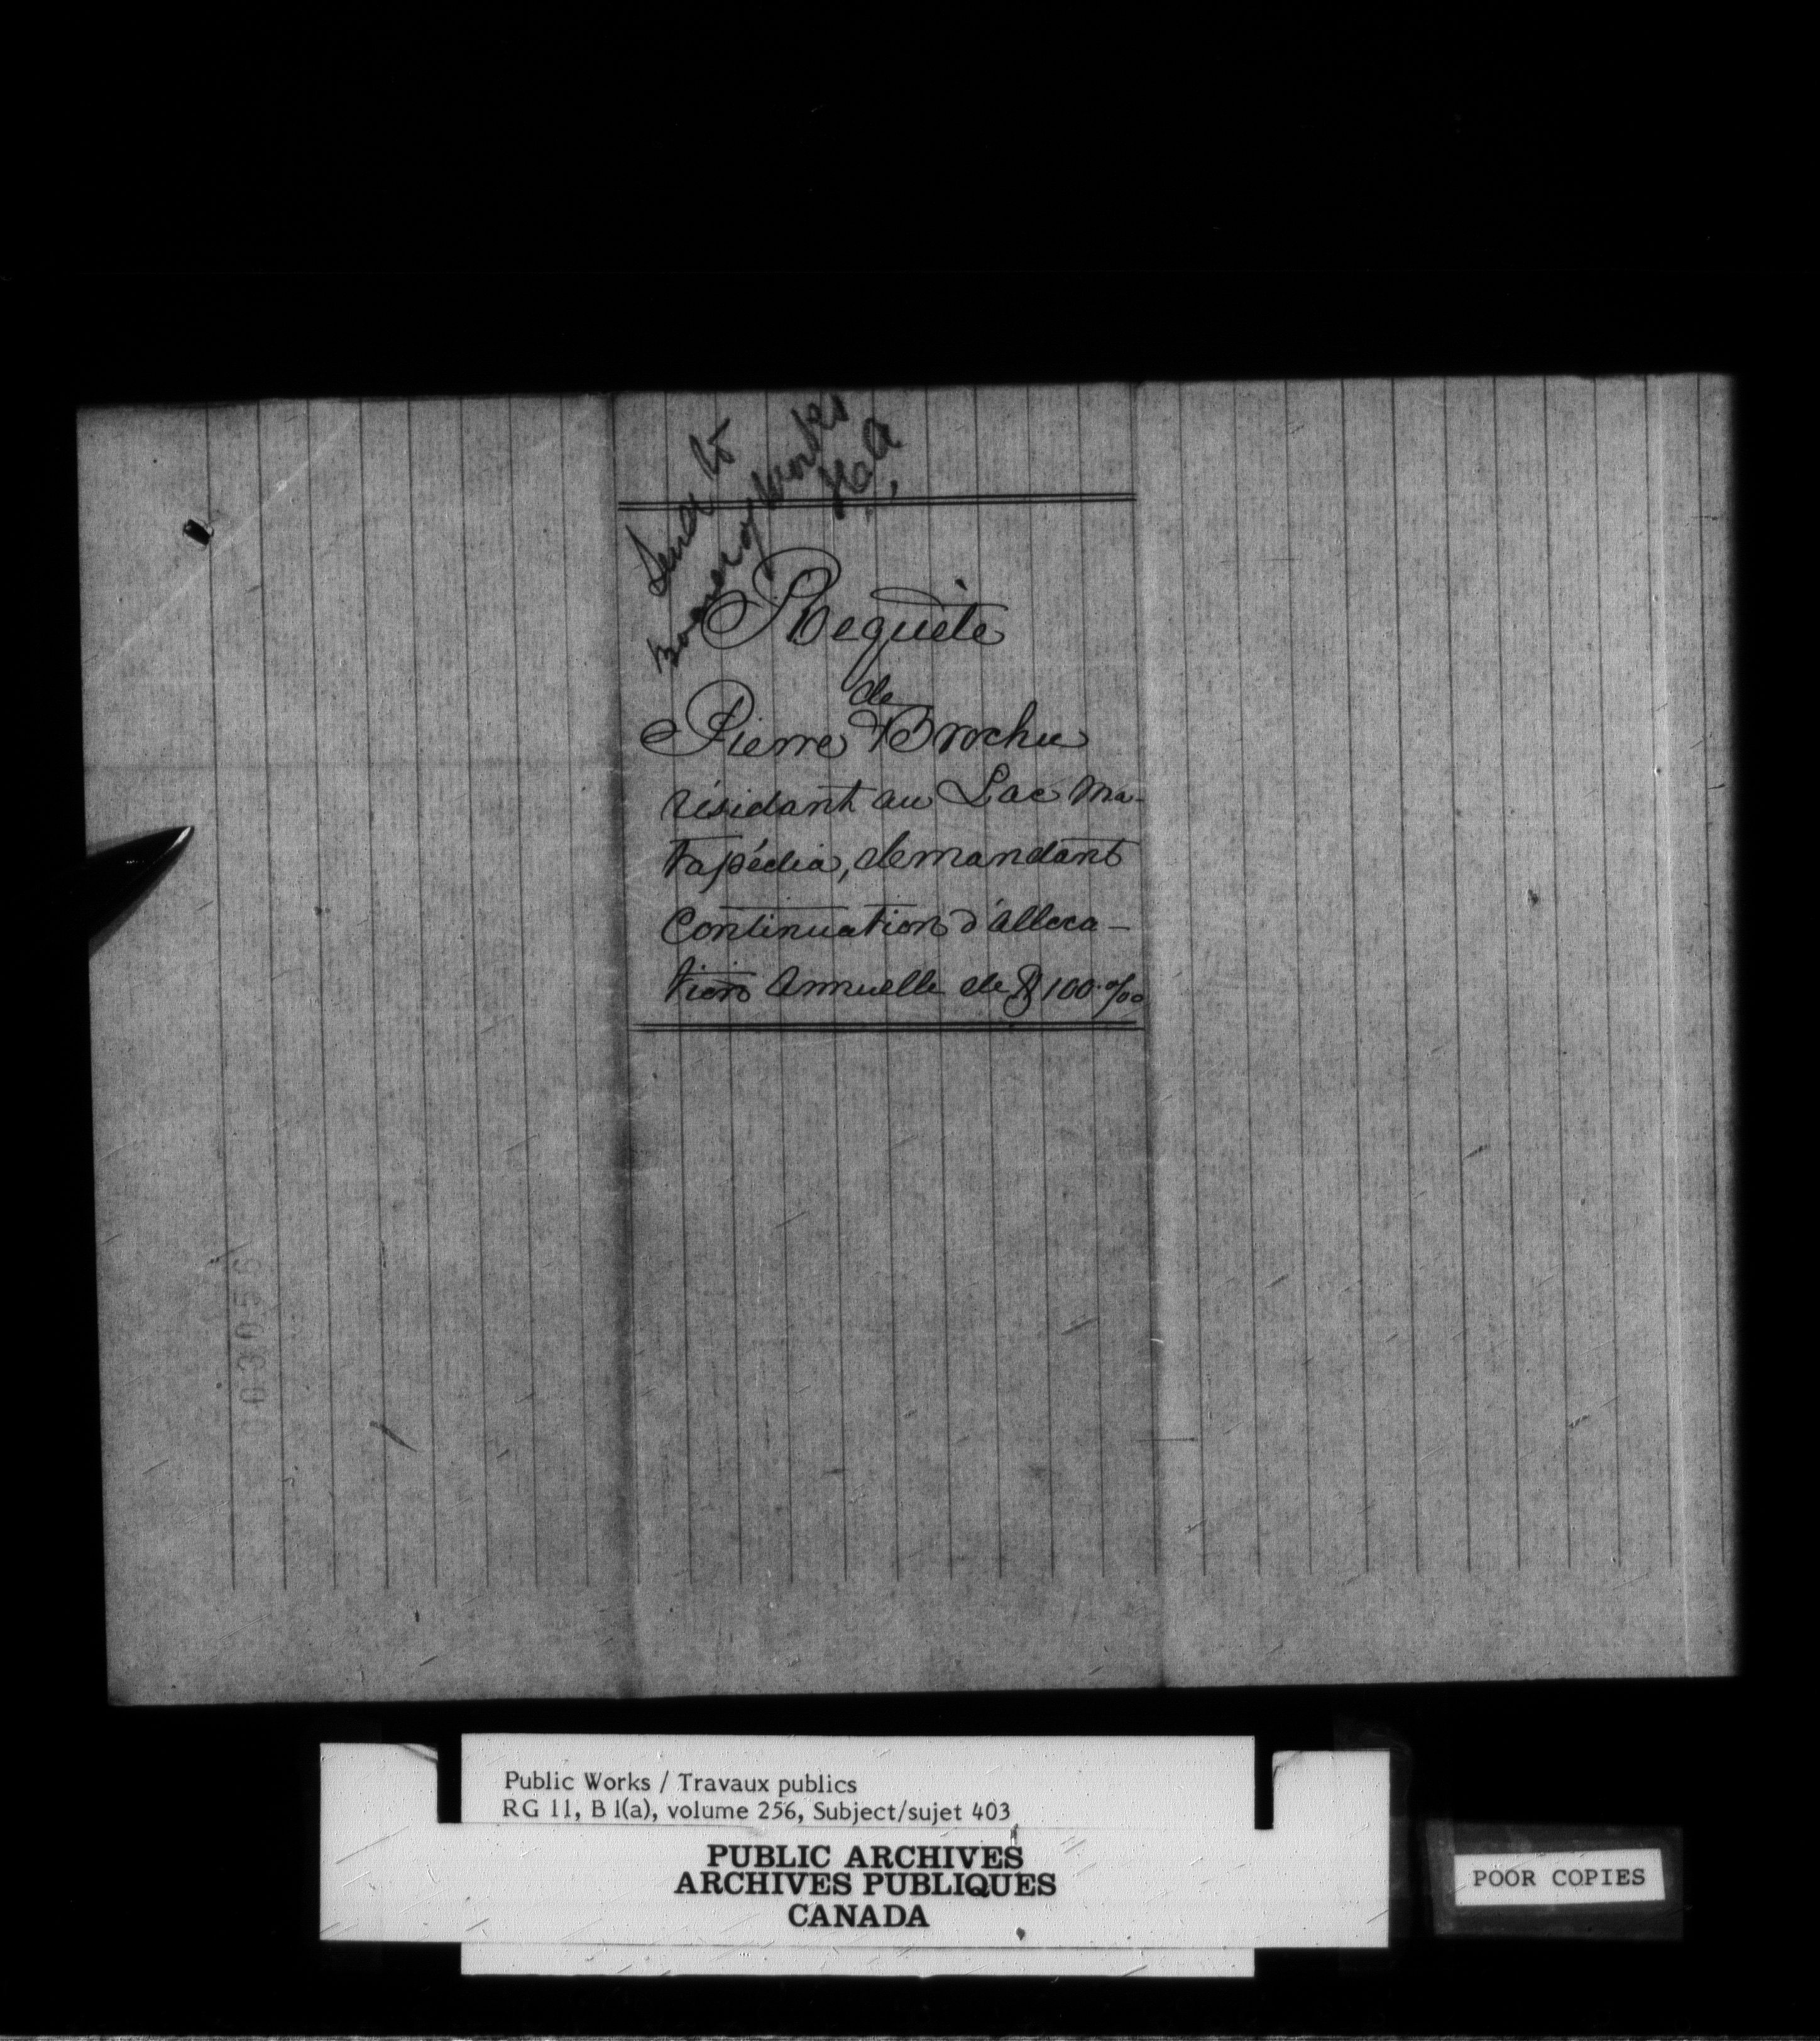 Send to
Board of Works
Requête
de
Pierre Brochu
résidant au Lac Ma-
tapédia, demandant
Continuation d'alloca-
tion Annuelle de $100.%00
003056
Public Works / Travaux publics
RG 11, B 1(a), volume 256, Subject/sujet 403
PUBLIC ARCHIVES
ARCHIVES PUBLIQUES
CANADA
POOR COPIES